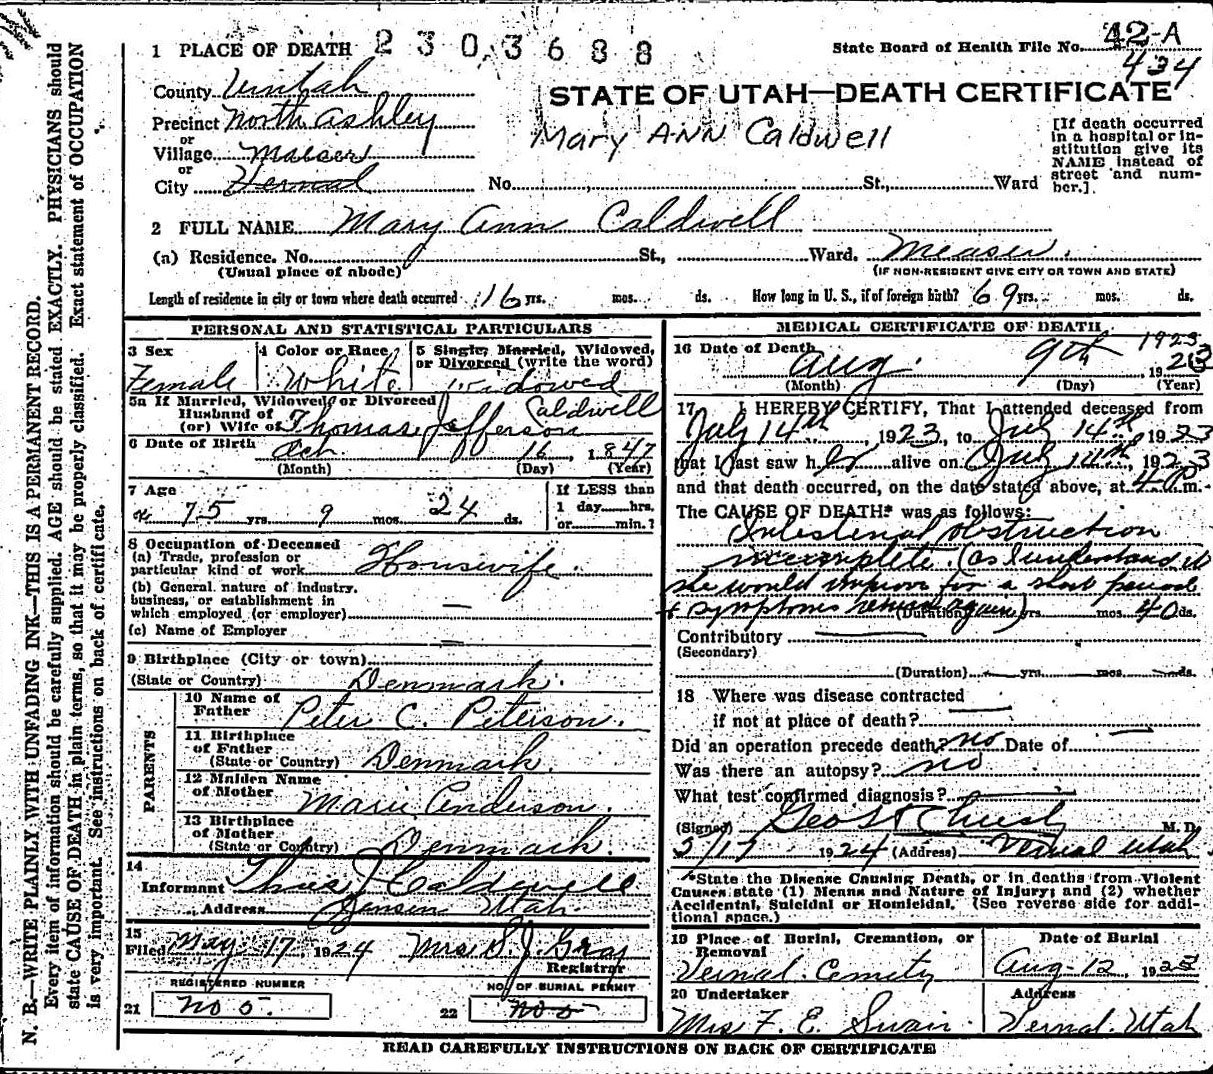 N. B.—WRITE PLAINLY WITH UNFADING INK—THIS IS A PERMANENT RECORD.
Every item of information should be carefully supplied. AGE should be stated EXACTLY. PHYSICIANS should
state CAUSE OF DEATH in plain terms, so that it may be properly classified. Exact statement of OCCUPATION
is very important. See instructions on back of certificate.
2303688
State Board of Health File No. 42-A
434
1 PLACE OF DEATH
County Uintah
STATE OF UTAH—DEATH CERTIFICATE
Precinct North Ashley
Mary ANN Caldwell
or
Village Maeser
or
City Vernal No. St., Ward
[If death occurred
in a hospital or in-
stitution give its
NAME instead of
street and num-
ber.]
2 FULL NAME Mary Ann Caldwell
(a) Residence. No. St., Ward. Measer.
(Usual place of abode)
(IF NON-RESIDENT GIVE CITY OR TOWN AND STATE)
Length of residence in city or town where death occurred 16 yrs. mos. ds. How long in U. S., if of foreign birth? 69 yrs. mos. ds.
PERSONAL AND STATISTICAL PARTICULARS
3 Sex
Female
4 Color or Race
White
5 Single, Married, Widowed,
or Divorced (write the word)
Widowed
5a If Married, Widowed or Divorced
Husband of
(or) Wife of Thomas Jefferson Caldwell
6 Date of Birth Och. 16, 1847
(Month) (Day) (Year)
7 Age
75 yrs. 9 mos. 24 ds.
If LESS than
1 day hrs.
or min.?
8 Occupation of Deceased
(a) Trade, profession or
particular kind of work Housewife.
(b) General nature of industry,
business, or establishment in
which employed (or employer) —
(c) Name of Employer —
9 Birthplace (City or town)
(State or Country) Denmark.
PARENTS
10 Name of
Father Peter C. Peterson.
11 Birthplace
of Father
(State or Country) Denmark.
12 Maiden Name
of Mother Marie Anderson.
13 Birthplace
of Mother
(State or Country) Denmark.
14
Informant Thos J Caldwell
Address Jensen Utah.
15
Filed May 17 1924 Mrs S. J. Gray
Registrar
REGISTERED NUMBER
21 No 5.
NO. OF BURIAL PERMIT
22 No 5
MEDICAL CERTIFICATE OF DEATH
1923
16 Date of Death Aug. 9th, 1923
(Month) (Day) (Year)
17 I HEREBY CERTIFY, That I attended deceased from
July 14th, 1923, to July 14th 1923
that I last saw her alive on July 14th, 1923
and that death occurred, on the date stated above, at 4 P.m.
The CAUSE OF DEATH* was as follows:
Intestinal obstruction
incomplete. (as I understand it
she would improve for a short period
& symptoms again) (Duration) yrs. mos. 40 ds.
Contributory
(Secondary)
(Duration) yrs. mos. ds.
18 Where was disease contracted
if not at place of death?
Did an operation precede death? no Date of
Was there an autopsy? no
What test confirmed diagnosis?
(Signed) Geo M.D.
5/17 1924 (Address) Vernal Utah
*State the Disease Causing Death, or in deaths from Violent
Causes state (1) Means and Nature of Injury; and (2) whether
Accidental, Suicidal or Homicidal. (See reverse side for addi-
tional space.)
19 Place of Burial, Cremation, or
Removal
Vernal Cemety
Date of Burial
Aug-12, 1923
20 Undertaker
Mrs F. E. Swain.
Address
Vernal. Utah
READ CAREFULLY INSTRUCTIONS ON BACK OF CERTIFICATE